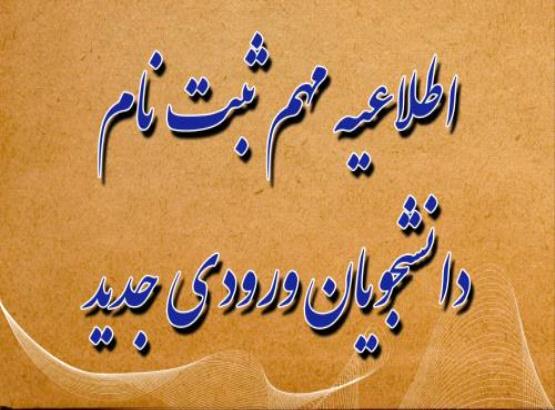 اطلاعیه مهم ثبت نام
دانشجویان ورودی جدید